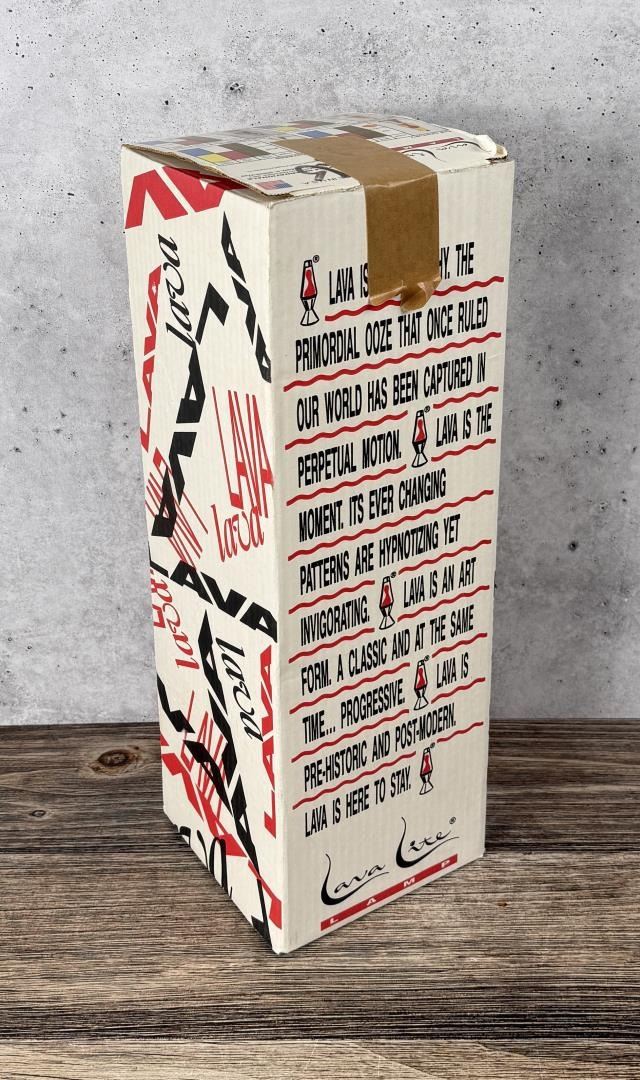 LAVA IS HY. THE
PRIMORDIAL OOZE THAT ONCE RULED
OUR WORLD HAS BEEN CAPTURED IN
PERPETUAL MOTION. LAVA IS THE
MOMENT. ITS EVER CHANGING
PATTERNS ARE HYPNOTIZING YET
INVIGORATING. LAVA IS AN ART
FORM. A CLASSIC AND AT THE SAME
TIME... PROGRESSIVE. LAVA IS
PRE-HISTORIC AND POST-MODERN.
LAVA IS HERE TO STAY.
Lava Lite®
LAMP
lava
LAVA
LAVA
LAVA
LAVA
lava
LAVA
lava
LAVA
lava
LAVA
LAVA